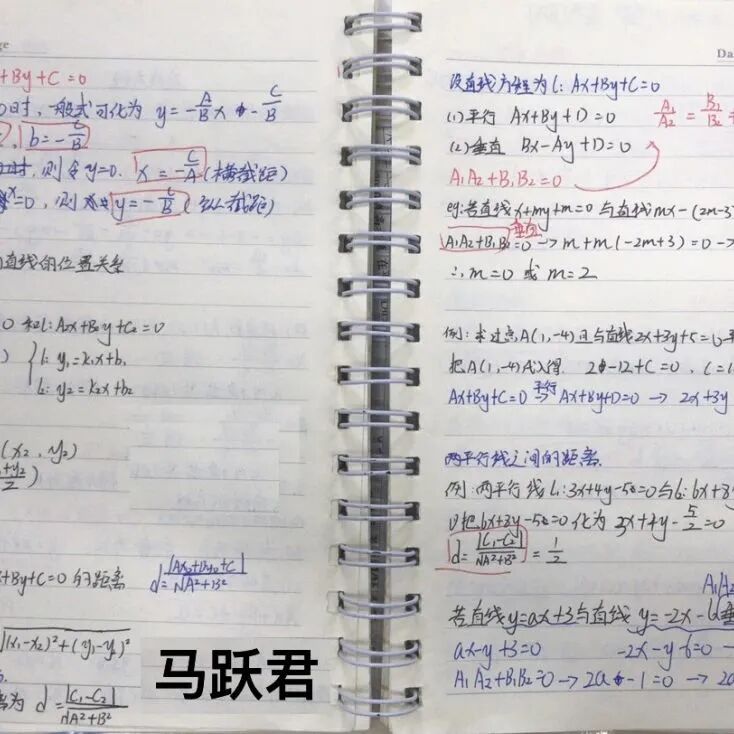 ge
+By+C=0
0时,一般式可化为 y=-A/B x - C/B
b=-C/B
则令y=0. x=-C/A(横截距)
x=0,则 y=-C/B (纵截距)
直线的位置关系
0 和l:A₂x+B₂y+C₂=0
l₁:y₁=k₁x+b₁
l₂:y₂=k₂x+b₂
(x₂,y₂)
+y₂/2)
x+By+C=0的距离 d=|Ax₀+By₀+C|/√A²+B²
√(x₁-x₂)²+(y₁-y₂)²
为 d=|C₁-C₂|/√A²+B²
马跃君
Da
设直线方程为l:Ax+By+C=0
(1)平行 Ax+By+D=0 A₁/A₂=B₁/B₂
(2)垂直 Bx-Ay+D=0
A₁A₂+B₁B₂=0
eg:若直线x+my+m=0与直线mx-(2m-3)
垂直
A₁A₂+B₁B₂=0→m+m(-2m+3)=0→
∴m=0 或 m=2
例:求过点A(1,-4)且与直线2x+3y+5=0平
把A(1,-4)代入得. 2-12+C=0
Ax+By+C=0 平行→ Ax+By+D=0 → 2x+3y
两平行线之间的距离.
例:两平行线l₁:3x+4y-5=0与l₂:6x+8y
把6x+8y-5=0化为 3x+4y-5/2=0
d=|C₁-C₂|/√A²+B² = 1/2
A₁A₂
若直线y=ax+3与直线y=-2x-6垂
ax-y+3=0 -2x-y-6=0
A₁A₂+B₁B₂=0→2a-1=0→2a